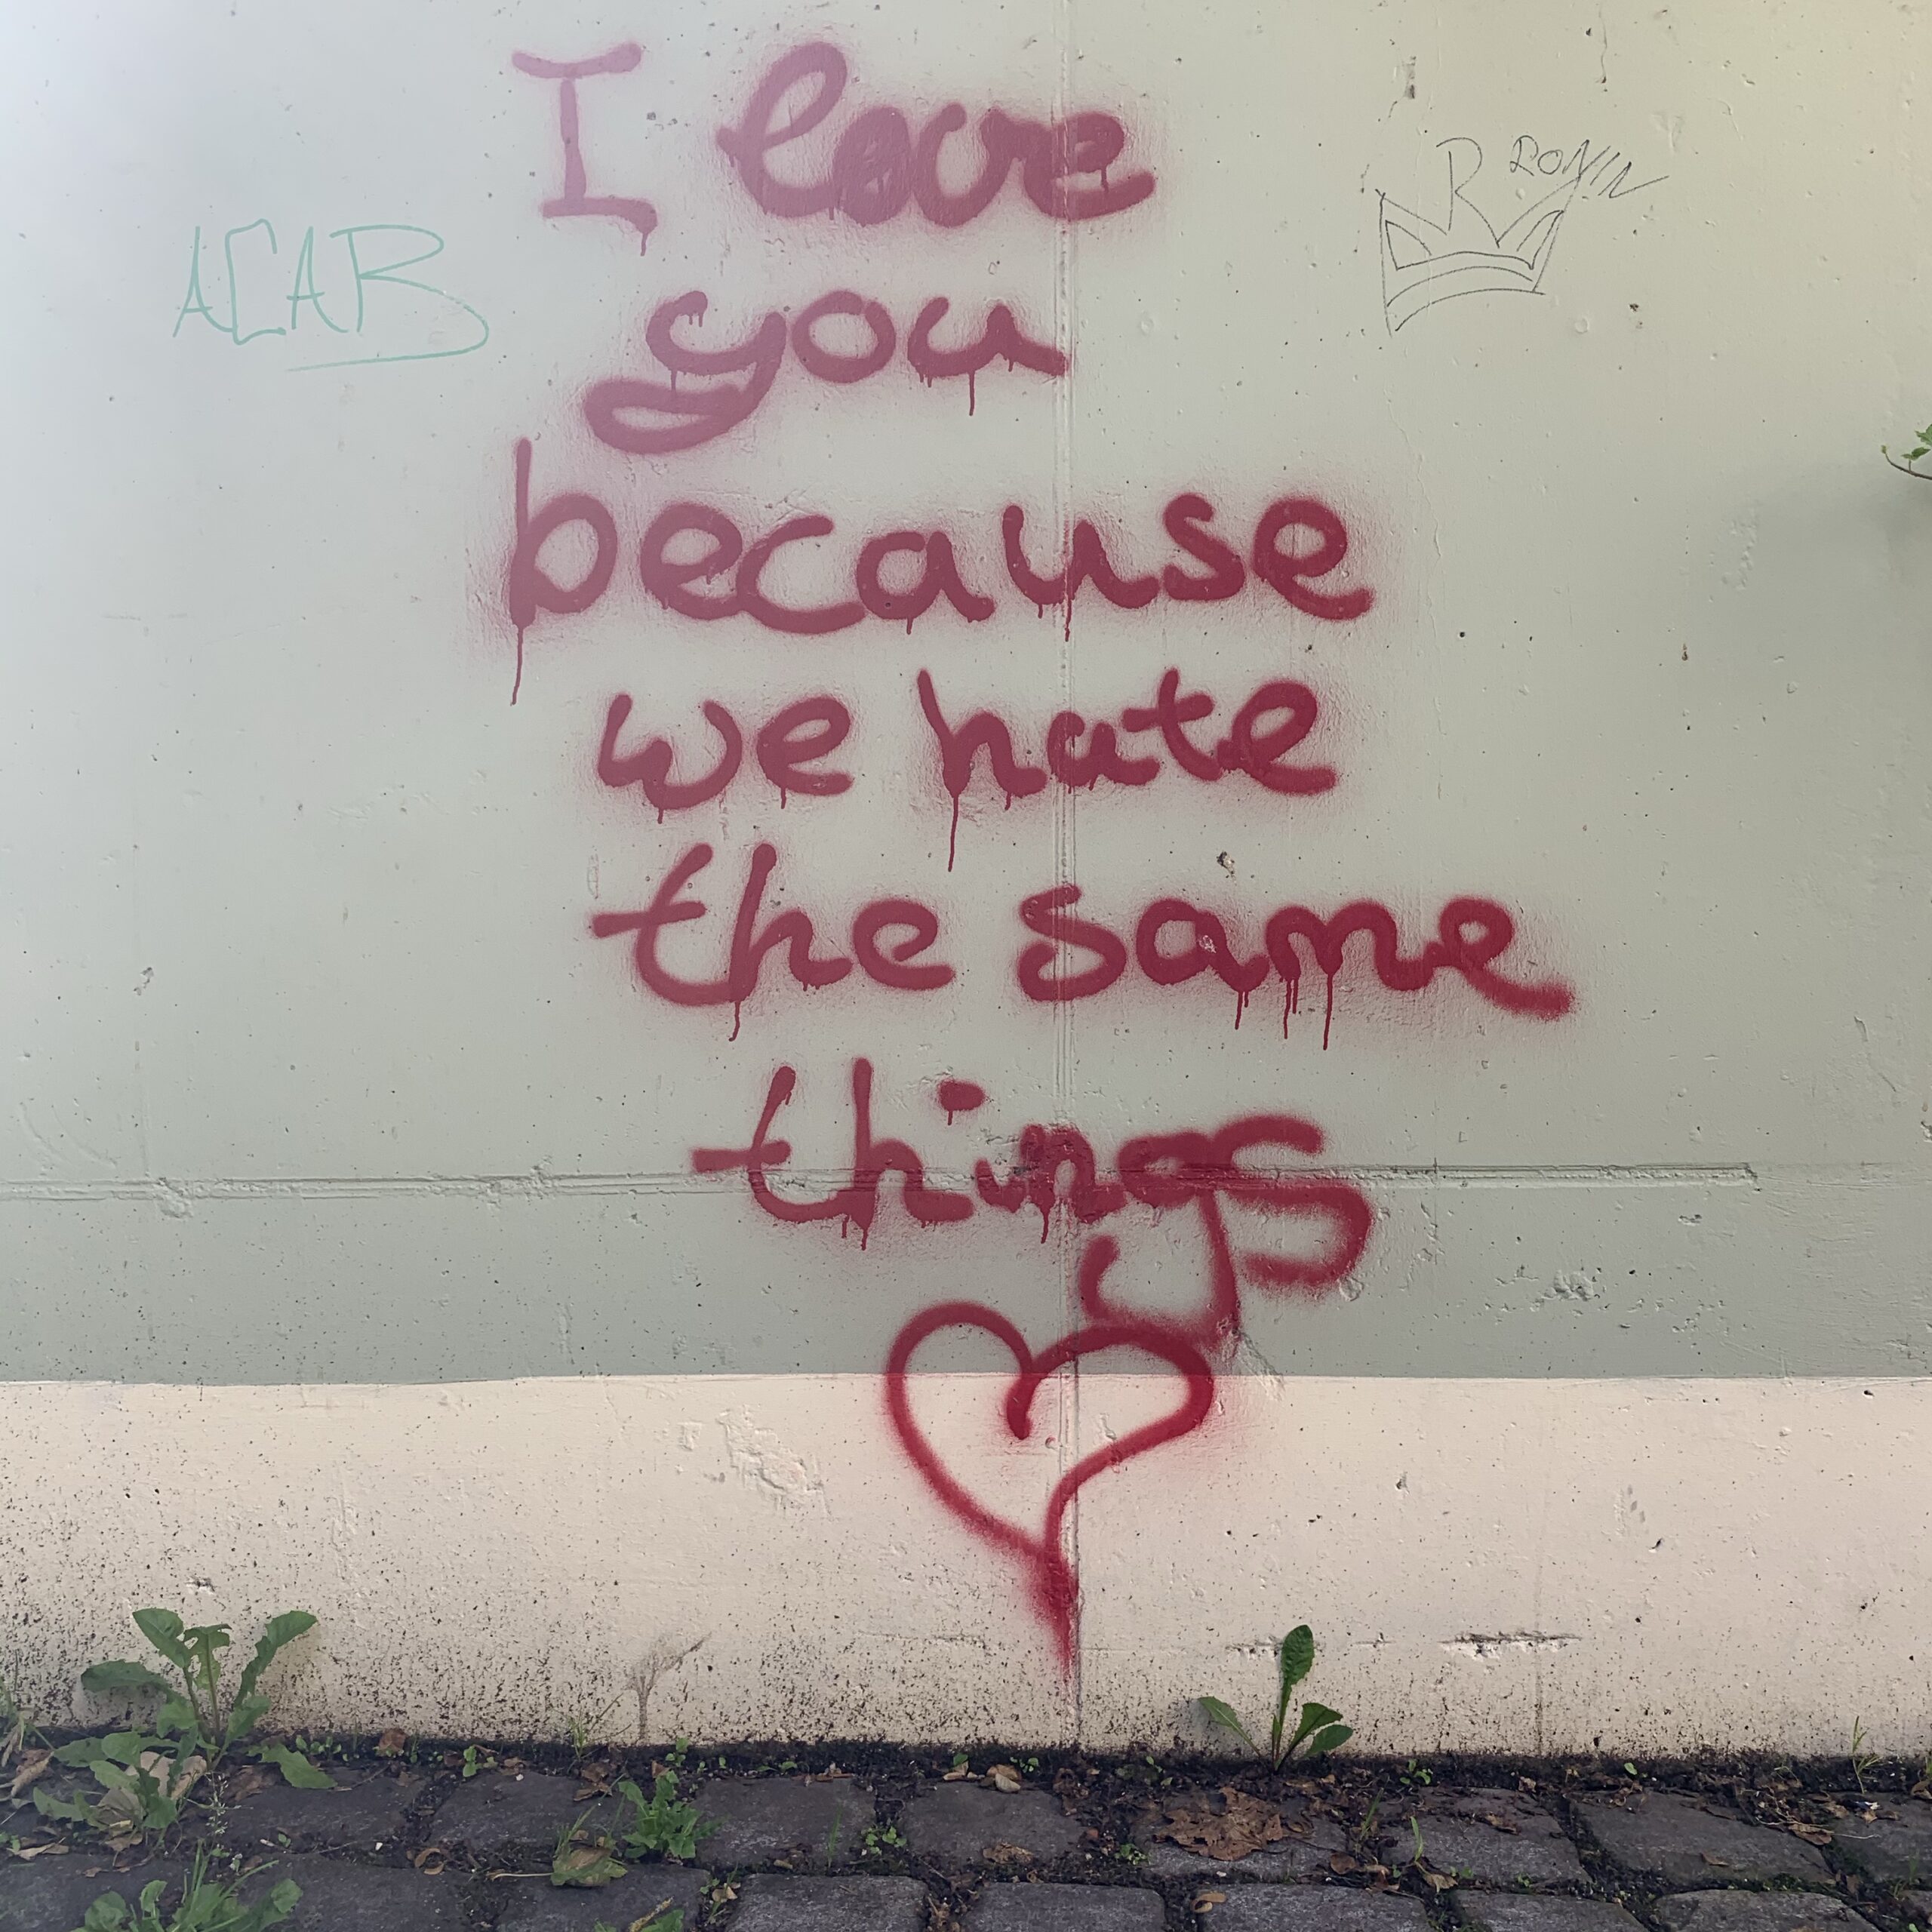 I love
you
because
we hate
the same
things
ACAB
R RONIN